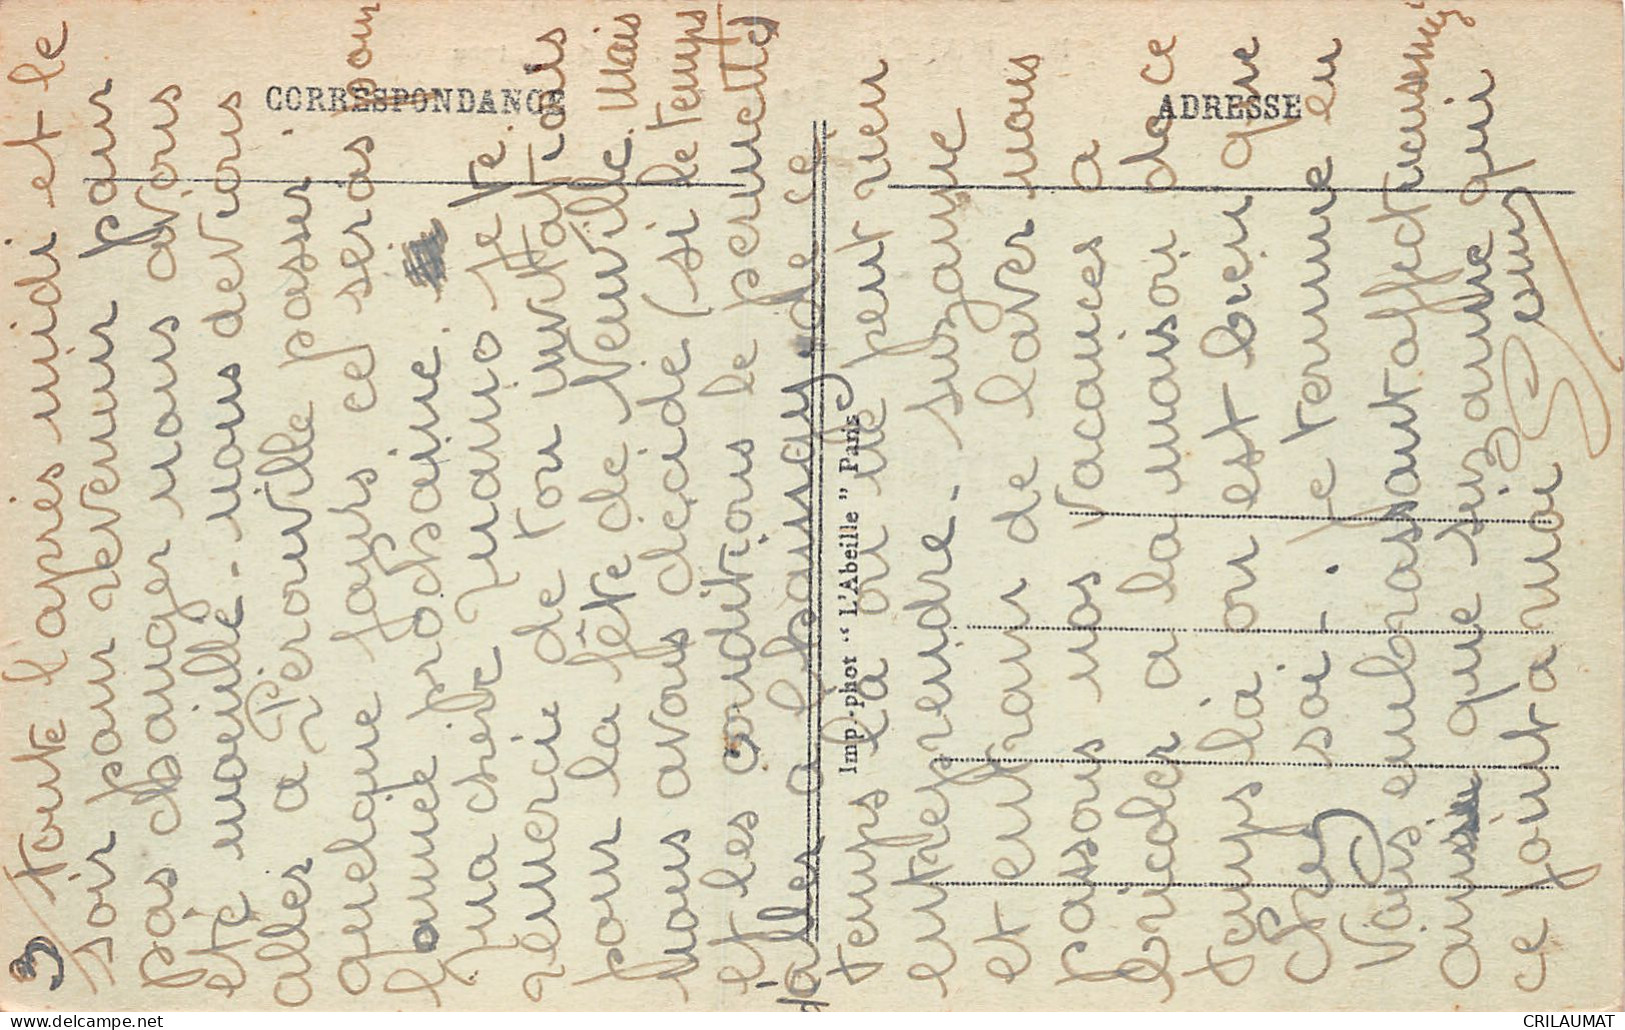 3/ toute l'après midi et le
soir pour revenir pour
pas changer nous avons
eté mouillé - nous devions
aller a Pérouville passer
quelque jours ce seras pour
l'année prochaine.
ma chère Juano je te
remercie de ton invitations
pour la fête de Neuville mais
nous avons decidé (si le temps
et les conditions le permette)
d'aller a hausay. de ce
temps la on ne peut rien
entreprendre - suzanne
et entrain de laver nous
passons nos vacances a
bricoler a la maison de ce
temps la on est bien que
chez soi - . je termine en
vous embrassant affectueusement
ainsi que suzanne qui
ce joint a moi
CORRESPONDANCE
ADRESSE
Imp-phot “ L'Abeille ” Paris
CRILAUMAT